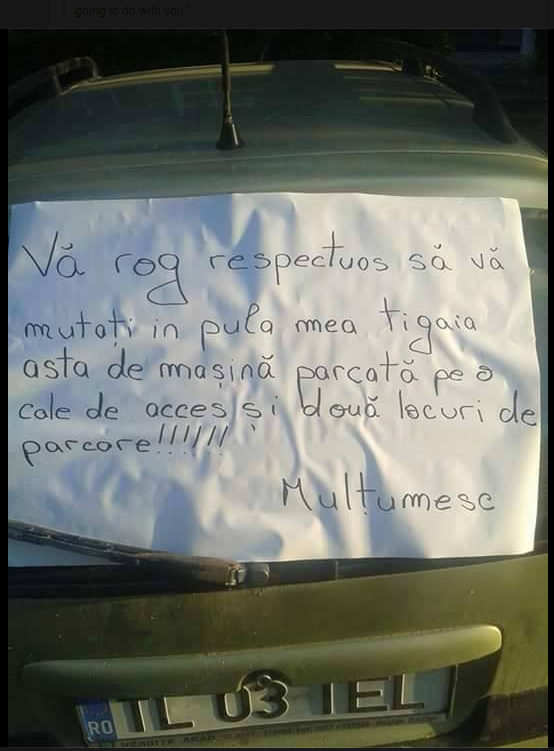 going to do with you."
Vă rog respectuos să vă
mutați in pula mea tigaia
asta de mașină parcată pe o
cale de acces și două locuri de
parcare!!!!!!
Mulțumesc
RO TL 03 TEL